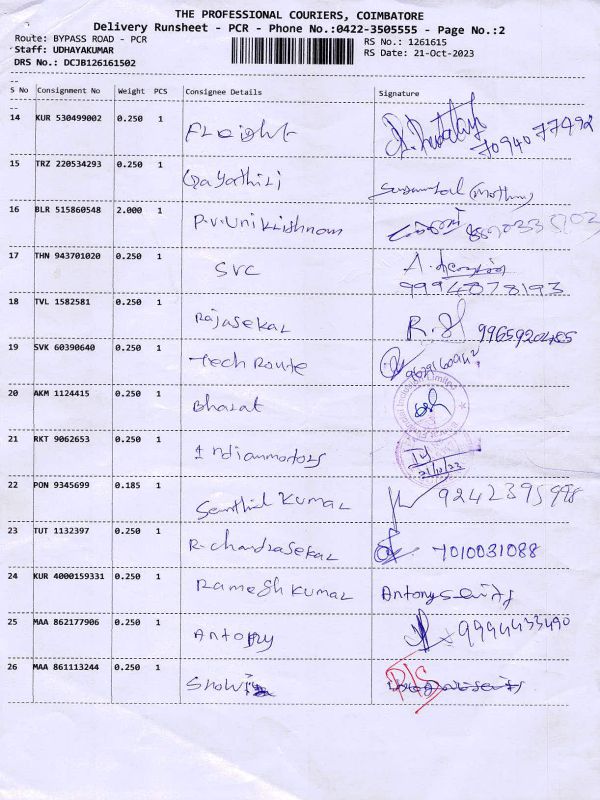 THE PROFESSIONAL COURIERS, COIMBATORE
Delivery Runsheet - PCR - Phone No.:0422-3505555 - Page No.:2
Route: BYPASS ROAD - PCR
RS No.: 1261615
Staff: UDHAYAKUMAR
RS Date: 21-Oct-2023
DRS No.: DCJB126161502
S No Consignment No Weight PCS Consignee Details Signature
14 KUR 530499002 0.250 1 Fleight 7094077492
15 TRZ 220534293 0.250 1 Gayathili (Mothu)
16 BLR 515860548 2.000 1 P.V. Uni Klishnom
17 THN 943701020 0.250 1 SVC A.
9994878193
18 TVL 1582581 0.250 1 Rajasekal R. 9965920485
19 SVK 60390640 0.250 1 Tech Route
20 AKM 1124415 0.250 1 Bharat
21 RKT 9062653 0.250 1 Indianmotors
21/10/23
22 PON 9345699 0.185 1 Senthil Kumal 9242395998
23 TUT 1132397 0.250 1 R. chandrasekal 7010031088
24 KUR 4000159331 0.250 1 Ramesh Kumal Antony
25 MAA 862177906 0.250 1 Antony 9994433490
26 MAA 861113244 0.250 1